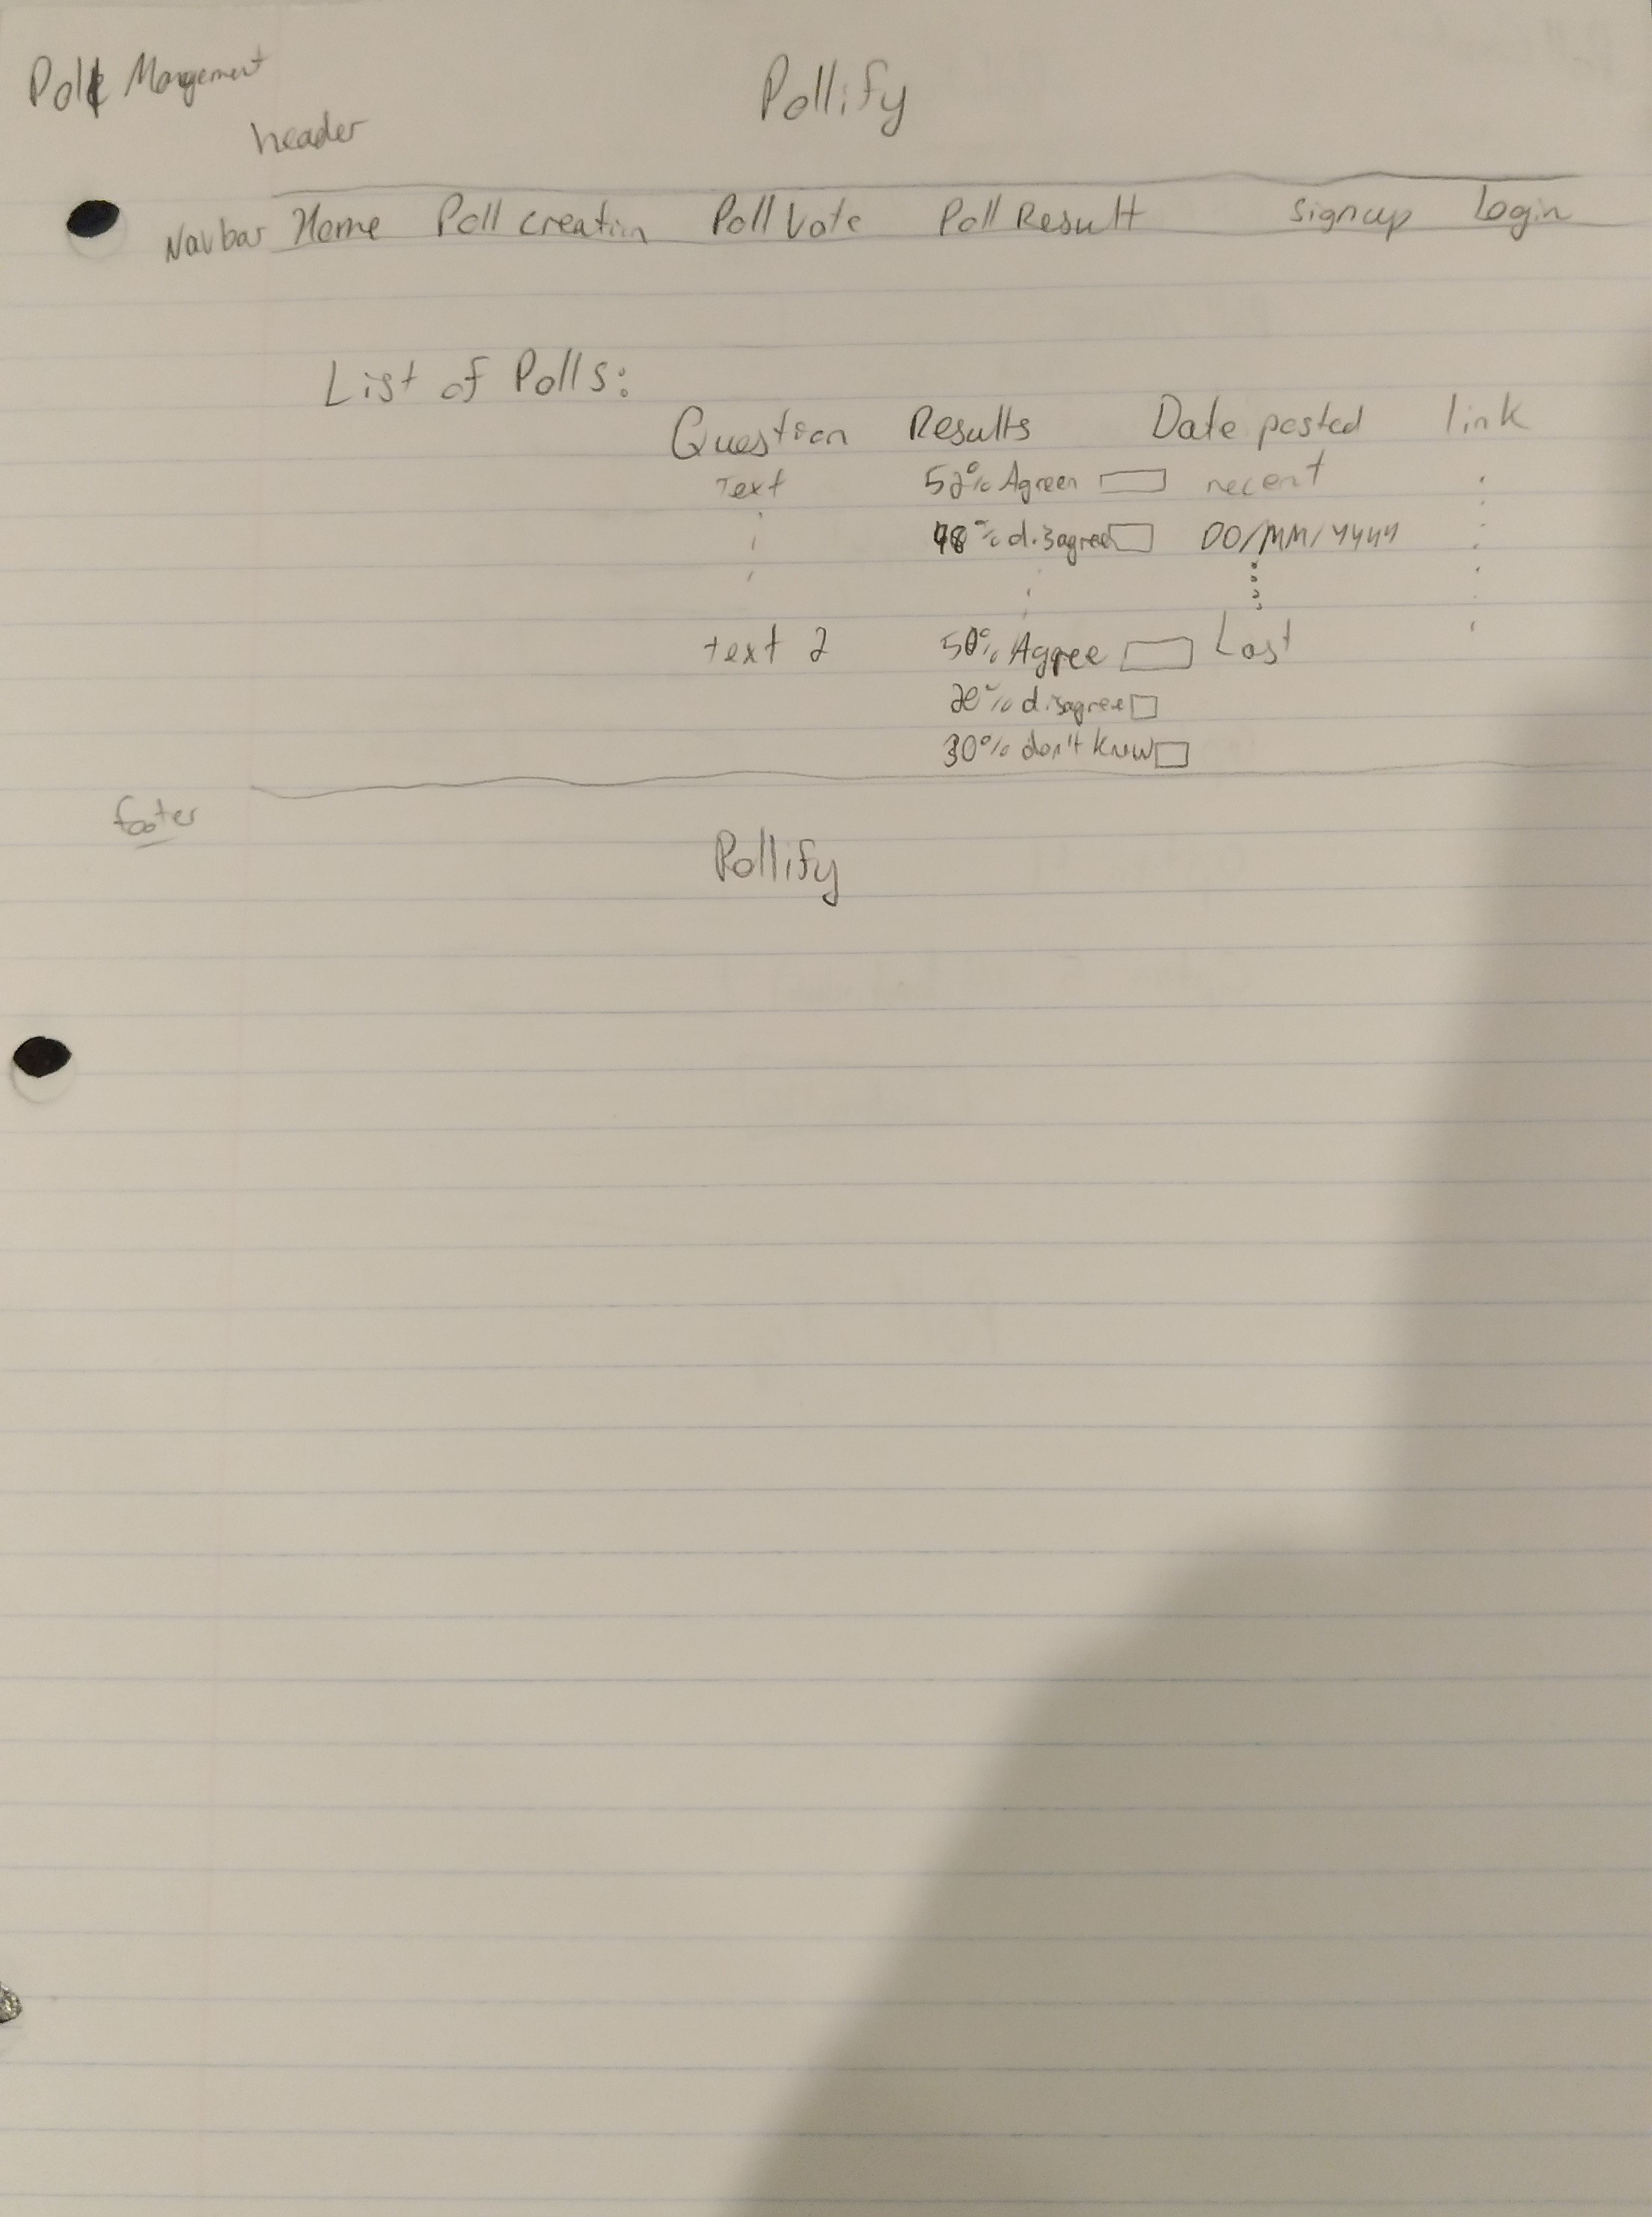 Poll Mangement
Pollify
header
Navbar Home Poll creation Poll Vote Poll Result Signup Login
List of Polls:
Question Results Date posted link
Text 52% Agreen recent
48% disagree DD/MM/YYYY
text 2 50% Agree Last
20% disagree
30% don't know
footer
Pollify